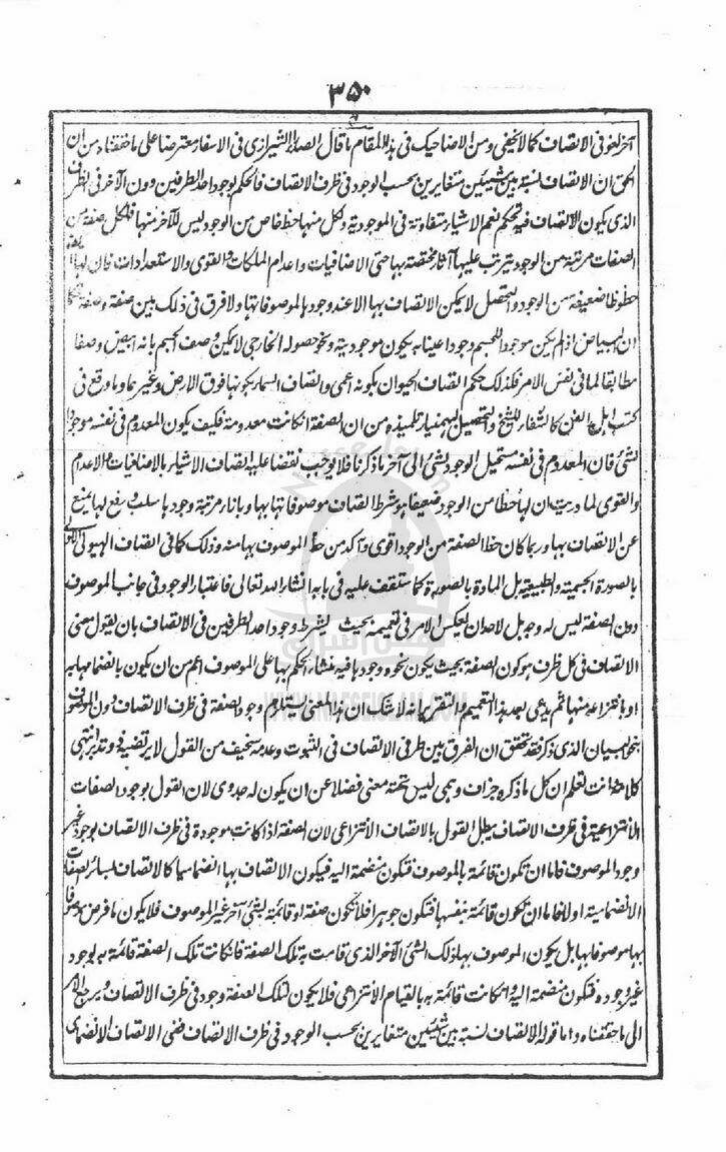 ٣٥٠
آخر لغو فى الاتصاف كما لا يخفى ومن الاضاحيك فى هذا المقام ما قال الصدر الشيرازى فى الاسفار معترضا على ما حققناه من ان
الحق ان الاتصاف نسبة بين شيئين متغايرين بحسب الوجود فى ظرف الاتصاف فالحكم بوجود احد الطرفين دون الآخر فى الظرف
الذى يكون الاتصاف فيه تحكم نعم الاشياء متفاوتة فى الموجودية ولكل منها حظ خاص من الوجود ليس للآخر منها فلكل صفة من
الصفات مرتبة من الوجود يترتب عليها آثار مختصة بها حتى الاضافيات واعدام الملكات والقوى والاستعدادات فان لها
حظوظا ضعيفة من الوجود والتحصل لا يمكن الاتصاف بها الا عند وجودها لموصوفاتها ولا فرق فى ذلك بين صفة وصفة فكما
ان البياض اذا لم يكن موجودا للجسم وجودا عينا به يكون موجوديته ونحو حصوله الخارجى لا يمكن وصف الجسم بانه ابيض وصفا
مطابقا لما فى نفس الامر فكذلك حكم اتصاف الحيوان بكونه اعمى واتصاف السماء بكونها فوق الارض وغيرهما وما وقع فى
كتب اهل الفن كالشفاء للشيخ والتحصيل لبهمنيار تلميذه من ان الصفة ان كانت معدومة فكيف يكون المعدوم فى نفسه موجودا
لشئ فان المعدوم فى نفسه مستحيل الوجود لشئ الى آخر ما ذكرنا فلا يوجب نقضا عليه اتصاف الاشياء بالاضافيات والاعدام
والقوى لما دريت ان لها حظا من الوجود ضعيفا هو شرط اتصاف موصوفاتها بها وبازاء مرتبة وجودها سلب ورفع لها يمنع
عن الاتصاف بها وربما كان حظ الصفة من الوجود اقوى وآكد من حظ الموصوف بها منه وذلك كما فى اتصاف الهيولى الاولى
بالصورة الجسمية والطبيعية بل المادة بالصورة كما ستقف عليه فى بابه انشاء الله تعالى فاعتبار الوجود فى جانب الموصوف
دون الصفة ليس له وجه بل لاحد ان يعكس الامر فى تعميمه بحيث يشترط وجود احد الطرفين فى الاتصاف بان يقول معنى
الاتصاف فى كل ظرف هو كون الصفة بحيث يكون نحو وجودها فيه منشاء الحكم بها على الموصوف اعم من ان يكون بانضمامها به
او بانتزاعه منها ثم يدعى بعد هذا التعميم والتقرير انه لا شك ان هذا المعنى يستلزم وجود الصفة فى ظرف الاتصاف دون الموصوف
بنحو البيان الذى ذكر فقد تحقق ان الفرق بين طرفى الاتصاف فى الثبوت وعدمه سخيف من القول لا يرتضيه ذو تدبر انتهى
كلامه وانت تعلم ان كل ما ذكره جزاف وهمى ليس تحته معنى فضلا عن ان يكون له جدوى لان القول بوجود الصفات
الانتزاعية فى ظرف الاتصاف يبطل القول بالاتصاف الانتزاعى لان الصفة اذا كانت موجودة فى ظرف الاتصاف بوجود غير
وجود الموصوف فاما ان تكون قائمة بالموصوف فتكون منضمة اليه فيكون الاتصاف بها انضماميا كالاتصاف بسائر الصفات
الانضمامية او لا فاما ان تكون قائمة بنفسها فتكون جوهرا فلا تكون صفة او قائمة بشئ آخر غير الموصوف فلا يكون ما فرض موصوفا
بها موصوفا بها بل يكون الموصوف بها ذلك الشئ الآخر الذى قامت به تلك الصفة فان كانت تلك الصفة قائمة به بوجود
غير وجوده فتكون منضمة اليه وان كانت قائمة به بالقيام الانتزاعى فلا يكون لتلك الصفة وجود فى ظرف الاتصاف ويرجع الامر
الى ما حققناه واما قوله الاتصاف نسبة بين شيئين متغايرين بحسب الوجود فى ظرف الاتصاف ففى الاتصاف الانضمامى